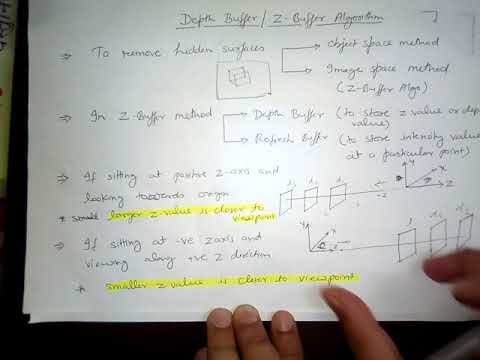 Depth Buffer / Z-Buffer Algorithm
⇒ To remove hidden surfaces
object space method
Image space method
(Z-Buffer Algo)
⇒ In Z-Buffer method
Depth Buffer (to store z value or dep
value)
Refresh Buffer (to store intensity value
at a particular point)
⇒ If sitting at positive z-axis and
looking towards origin
* larger z value is closer to
viewpoint
⇒ If sitting at -ve z axis and
viewing along +ve z direction
* smaller z value is closer to viewpoint